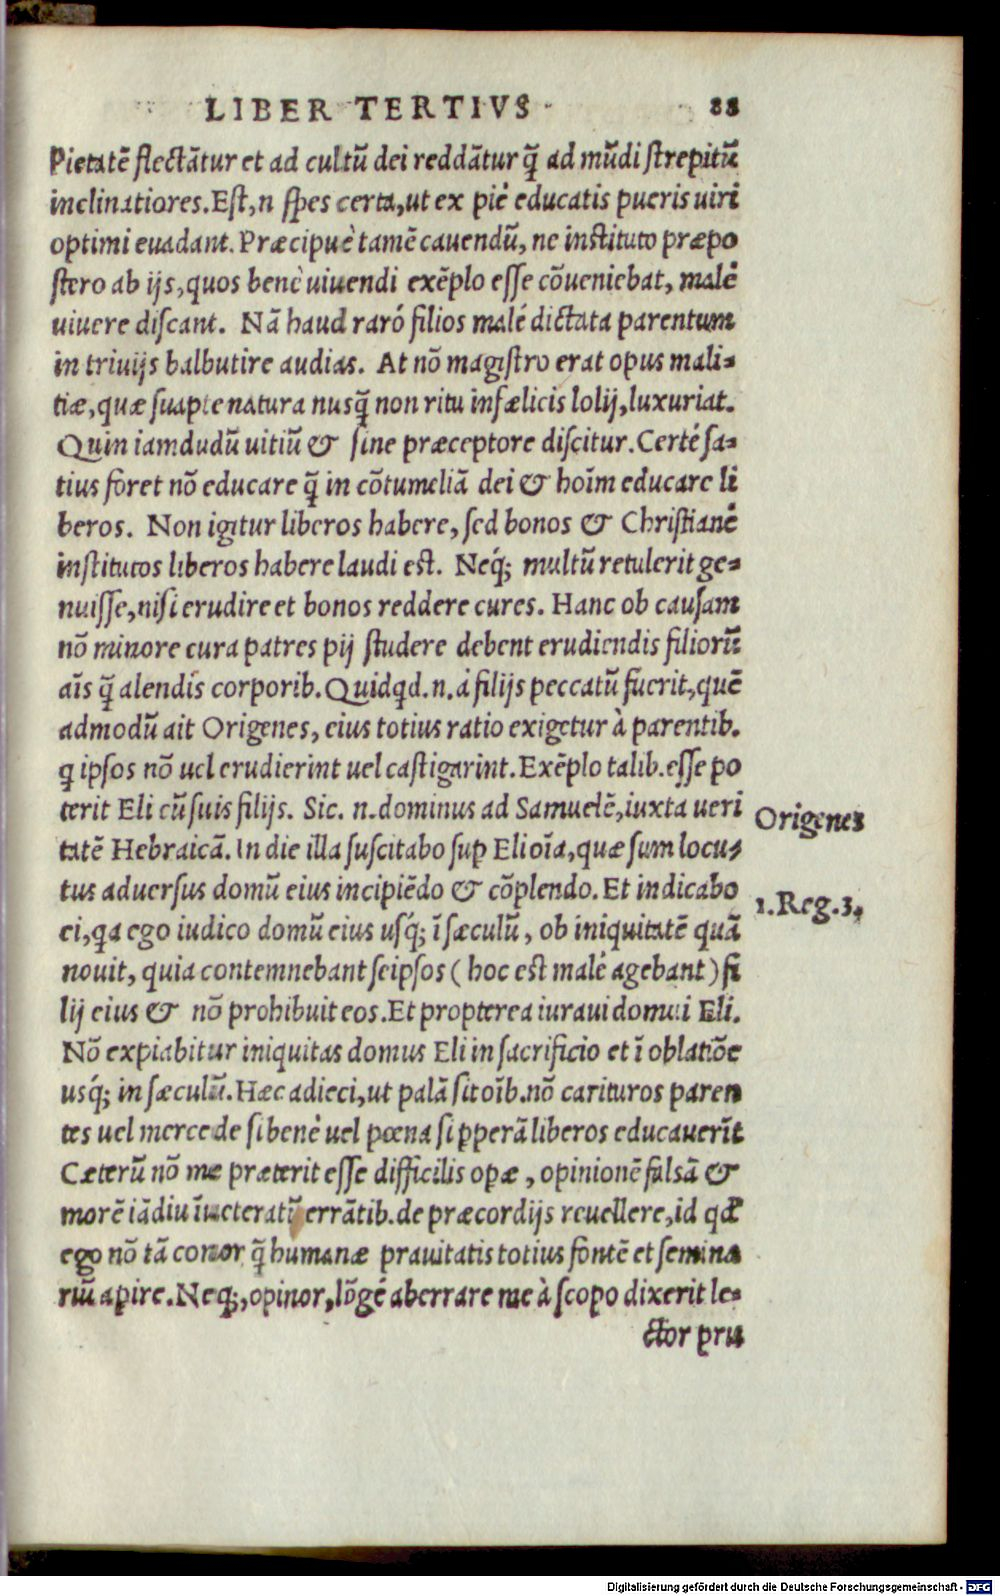 LIBER TERTIVS 88
Pietatē flectātur et ad cultū dei reddātur q̃ ad mūdi strepitū
inclinatiores. Est, n spes certa, ut ex piè educatis pueris uiri
optimi euadant. Præcipuè tamē cauendū, ne instituto præpo
stero ab ijs, quos benè uiuendi exēplo esse cōueniebat, malè
uiuere discant. Nā haud raró filios malé dictata parentum
in triuijs balbutire audias. At nō magistro erat opus mali-
tiæ, quæ suapte natura nusq̃ non ritu infælicis lolij, luxuriat.
Quin iamdudū uitiū & sine præceptore discitur. Certé sa-
tius foret nō educare q̃ in cōtumeliā dei & hoīm educare li
beros. Non igitur liberos habere, sed bonos & Christianè
institutos liberos habere laudi est. Neq́; multū retulerit ge-
nuisse, nisi erudire et bonos reddere cures. Hanc ob causam
nō minore cura patres pij studere debent erudiendis filiorū
aīs q̃ alendis corporib. Quidqd. n. à filijs peccatū fuerit, quē
admodū ait Origenes, eius totius ratio exigetur à parentib.
q ipsos nō uel erudierint uel castigarint. Exēplo talib. esse po
terit Eli cū suis filijs. Sic. n. dominus ad Samuelē, iuxta ueri
Origenes
tatē Hebraicā. In die illa suscitabo sup Eli oīa, quæ sum locu-
tus aduersus domū eius incipiēdo & cōplendo. Et indicabo
1. Reg. 3.
ei, qa ego iudico domū eius usq́; ī sæculū, ob iniquitatē quā
nouit, quia contemnebant seipsos (hoc est malé agebant) fi
lij eius & nō prohibuit eos. Et propterea iuraui domui Eli.
Nō expiabitur iniquitas domus Eli in sacrificio et ī oblatiōe
usq́; in sæculū. Hæc adieci, ut palā sit oīb. nō carituros paren
tes uel mercede si benè uel pœna si pperā liberos educauerīt
Cæterū nō me præterit esse difficilis opæ, opinionē falsā &
morē iādiu īueteratū errātib. de præcordijs reuellere, id qđ
ego nō tā conor q̃ humanæ prauitatis totius fontē et semina
riū apire. Neq;, opinor, lōgé aberrare me à scopo dixerit le-
ctor pru
Digitalisierung gefördert durch die Deutsche Forschungsgemeinschaft - DFG